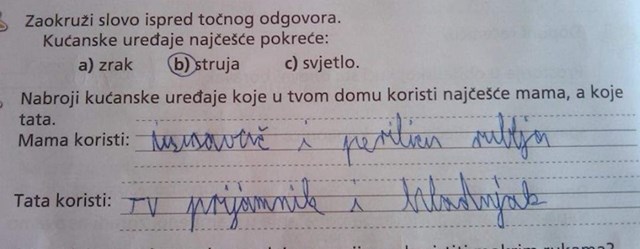 Zaokruži slovo ispred točnog odgovora.
Kućanske uređaje najčešće pokreće:
a) zrak b) struja c) svjetlo.
Nabroji kućanske uređaje koje u tvom domu koristi najčešće mama, a koje
tata.
Mama koristi: usisavač i perilicu rublja
Tata koristi: TV prijamnik i hladnjak